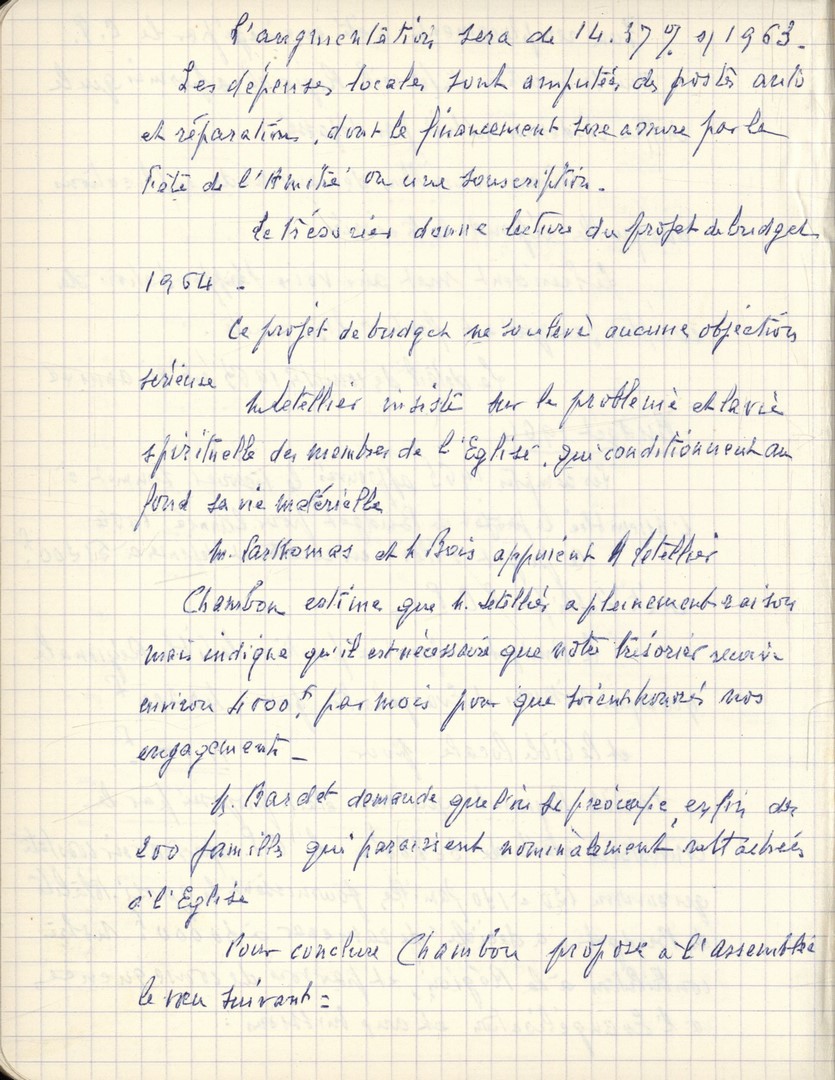 L'augmentation sera de 14.37 % s/ 1963.
Les dépenses locales sont amputées des postes auto
et réparations, dont le financement sera assuré par la
Fête de l'Amitié ou une souscription.
Le Trésorier donne lecture du projet de budget
1964.
Ce projet de budget ne soulève aucune objection
sérieuse
M. Letellier insiste sur le problème et la vie
spirituelle des membres de l'Eglise, qui conditionnent au
fond sa vie matérielle
M. Parthomas et M Bois appuient M Letellier
Chambon estime que M. Letellier a pleinement raison
mais indique qu'il est nécessaire que notre trésorier reçoive
environ 4000 F par mois pour que soient honorés nos
engagements -
M. Bardet demande que l'on se préoccupe, enfin des
200 familles qui paraissent nominalement rattachées
à l'Eglise
Pour conclure Chambon propose à l'assemblée
le voeu suivant =